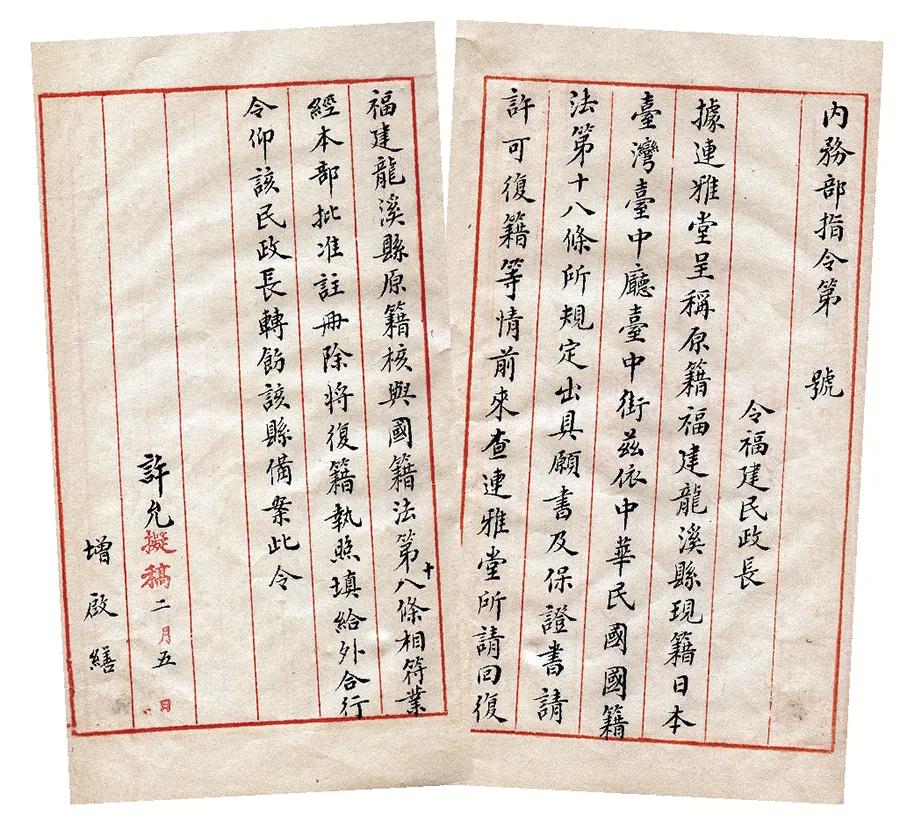 內務部指令第　號
令福建民政長
據連雅堂呈稱原籍福建龍溪縣現籍日本
臺灣臺中廳臺中街茲依中華民國國籍
法第十八條所規定出具願書及保證書請
許可復籍等情前來查連雅堂所請回復
福建龍溪縣原籍核與國籍法第十八條相符業
經本部批准註冊除將復籍執照填給外合行
令仰該民政長轉飭該縣備案此令
許允擬稿二月五日
增啟繕